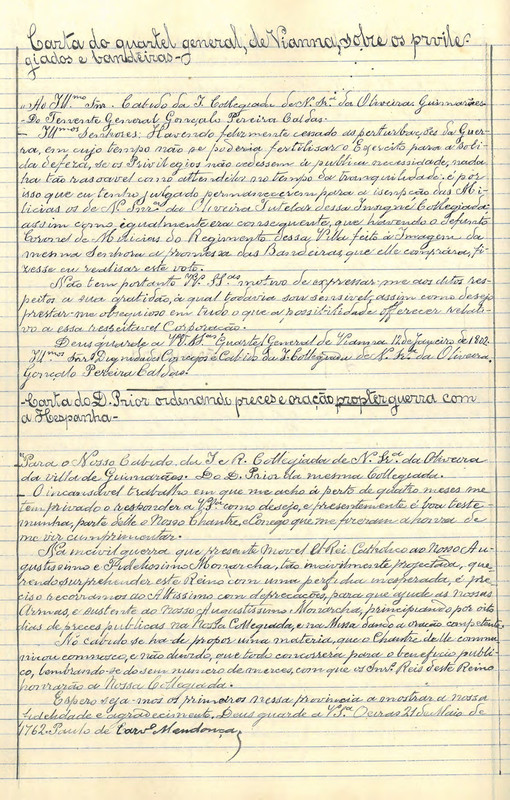 Carta do quartel general, de Vianna, sobre os prvile-
giados e bandeiras-
"Ao Ill.mo Snr. Cabido da I. Collegiada de N. Sr.a da Oliveira Guimarães-
Do Tenente General Gonçalo Pereira Caldas.
- Ill.mos Senhores: Havendo felizmente cessado as perturbações da Guer-
ra, em cujo tempo não se poderia fertilisar o Exercito para a sobi-
da defeza, se os Privilegios não cedessem á publica necessidade, nada
ha tão rasoavel como attendelos no tempo da tranquilidade: é por
isso que eu tenho julgado permanecerem para a isenpção das Mi-
licias os de N. Snr.a da Oliveira Tutelar dessa Insigne Collegiada,
assim como, egualmente era consequente, que havendo o defunto
Coronel de Milicias do Regimento dessa Villa feito á Imagem da
mesma Senhora a promessa das Bandeiras que elle comprára, fi-
zesse eu realisar este voto.
Não tem portanto VV. SS.as motivo de expressar-me aos ditos res-
peitos a sua gratidão, á qual todavia sou sensivel, assim como desejo
prestar-me obsequioso em tudo o que a possibilidade offerecer relati-
vo a essa respeitavel Corporação.
Deus guarde a VV. SS.as Quartel General de Vianna 12 de Janeiro de 1802.
Ill.mos Snrs. Dignidades Conegos e Cabido da I. Collegiada de N. Sr.a da Oliveira.
Gonçalo Pereira Caldas.
-Carta do D. Prior ordenando preces e oração propter guerra com
a Hespanha-
"Para o Nosso Cabido da I. e R. Collegiada de N. Sr.a da Oliveira
da villa de Guimarães. Do D. Prior da mesma Collegiada.
- O incansavel trabalho em que me acho á perto de quatro meses me
tem privado o responder a V. S.as como desejo, e presentemente é boa teste-
munha, parte delle o Nosso Chantre, e Conego que me fizeram a honra de
me vir cumprimentar.
Na incivil guerra que presente move El-Rei Catholico ao Nosso Au-
gustissimo e Fidelissimo Monarcha, tão incivilmente projectada, que-
rendo surprehender este Reino com uma perfidia inesperada, é pre-
ciso recorramos ao Altissimo com deprecações, para que ajude as nossas
Armas, e sustente ao Nosso Augustissimo Monarcha, principiando por oito
dias de preces publicas na Nossa Collegiada, e na Missa dando a oração competente.
No cabido se ha de propor uma materia, que o Chantre delle commu-
nicou commosco, e não duvido, que todo concorrerá para o beneficio publi-
co, lembrando-se do sem numero de merces, com que os Snrs. Reis deste Reino
honrarão a Nossa Collegiada.
Espero seja-mos os primeiros nessa provincia a mostrar a nossa
fidelidade e agradecimento. Deus guarde a V. S.as Oeiras 21 de Maio de
1762. Paulo de Carv.o Mendonça